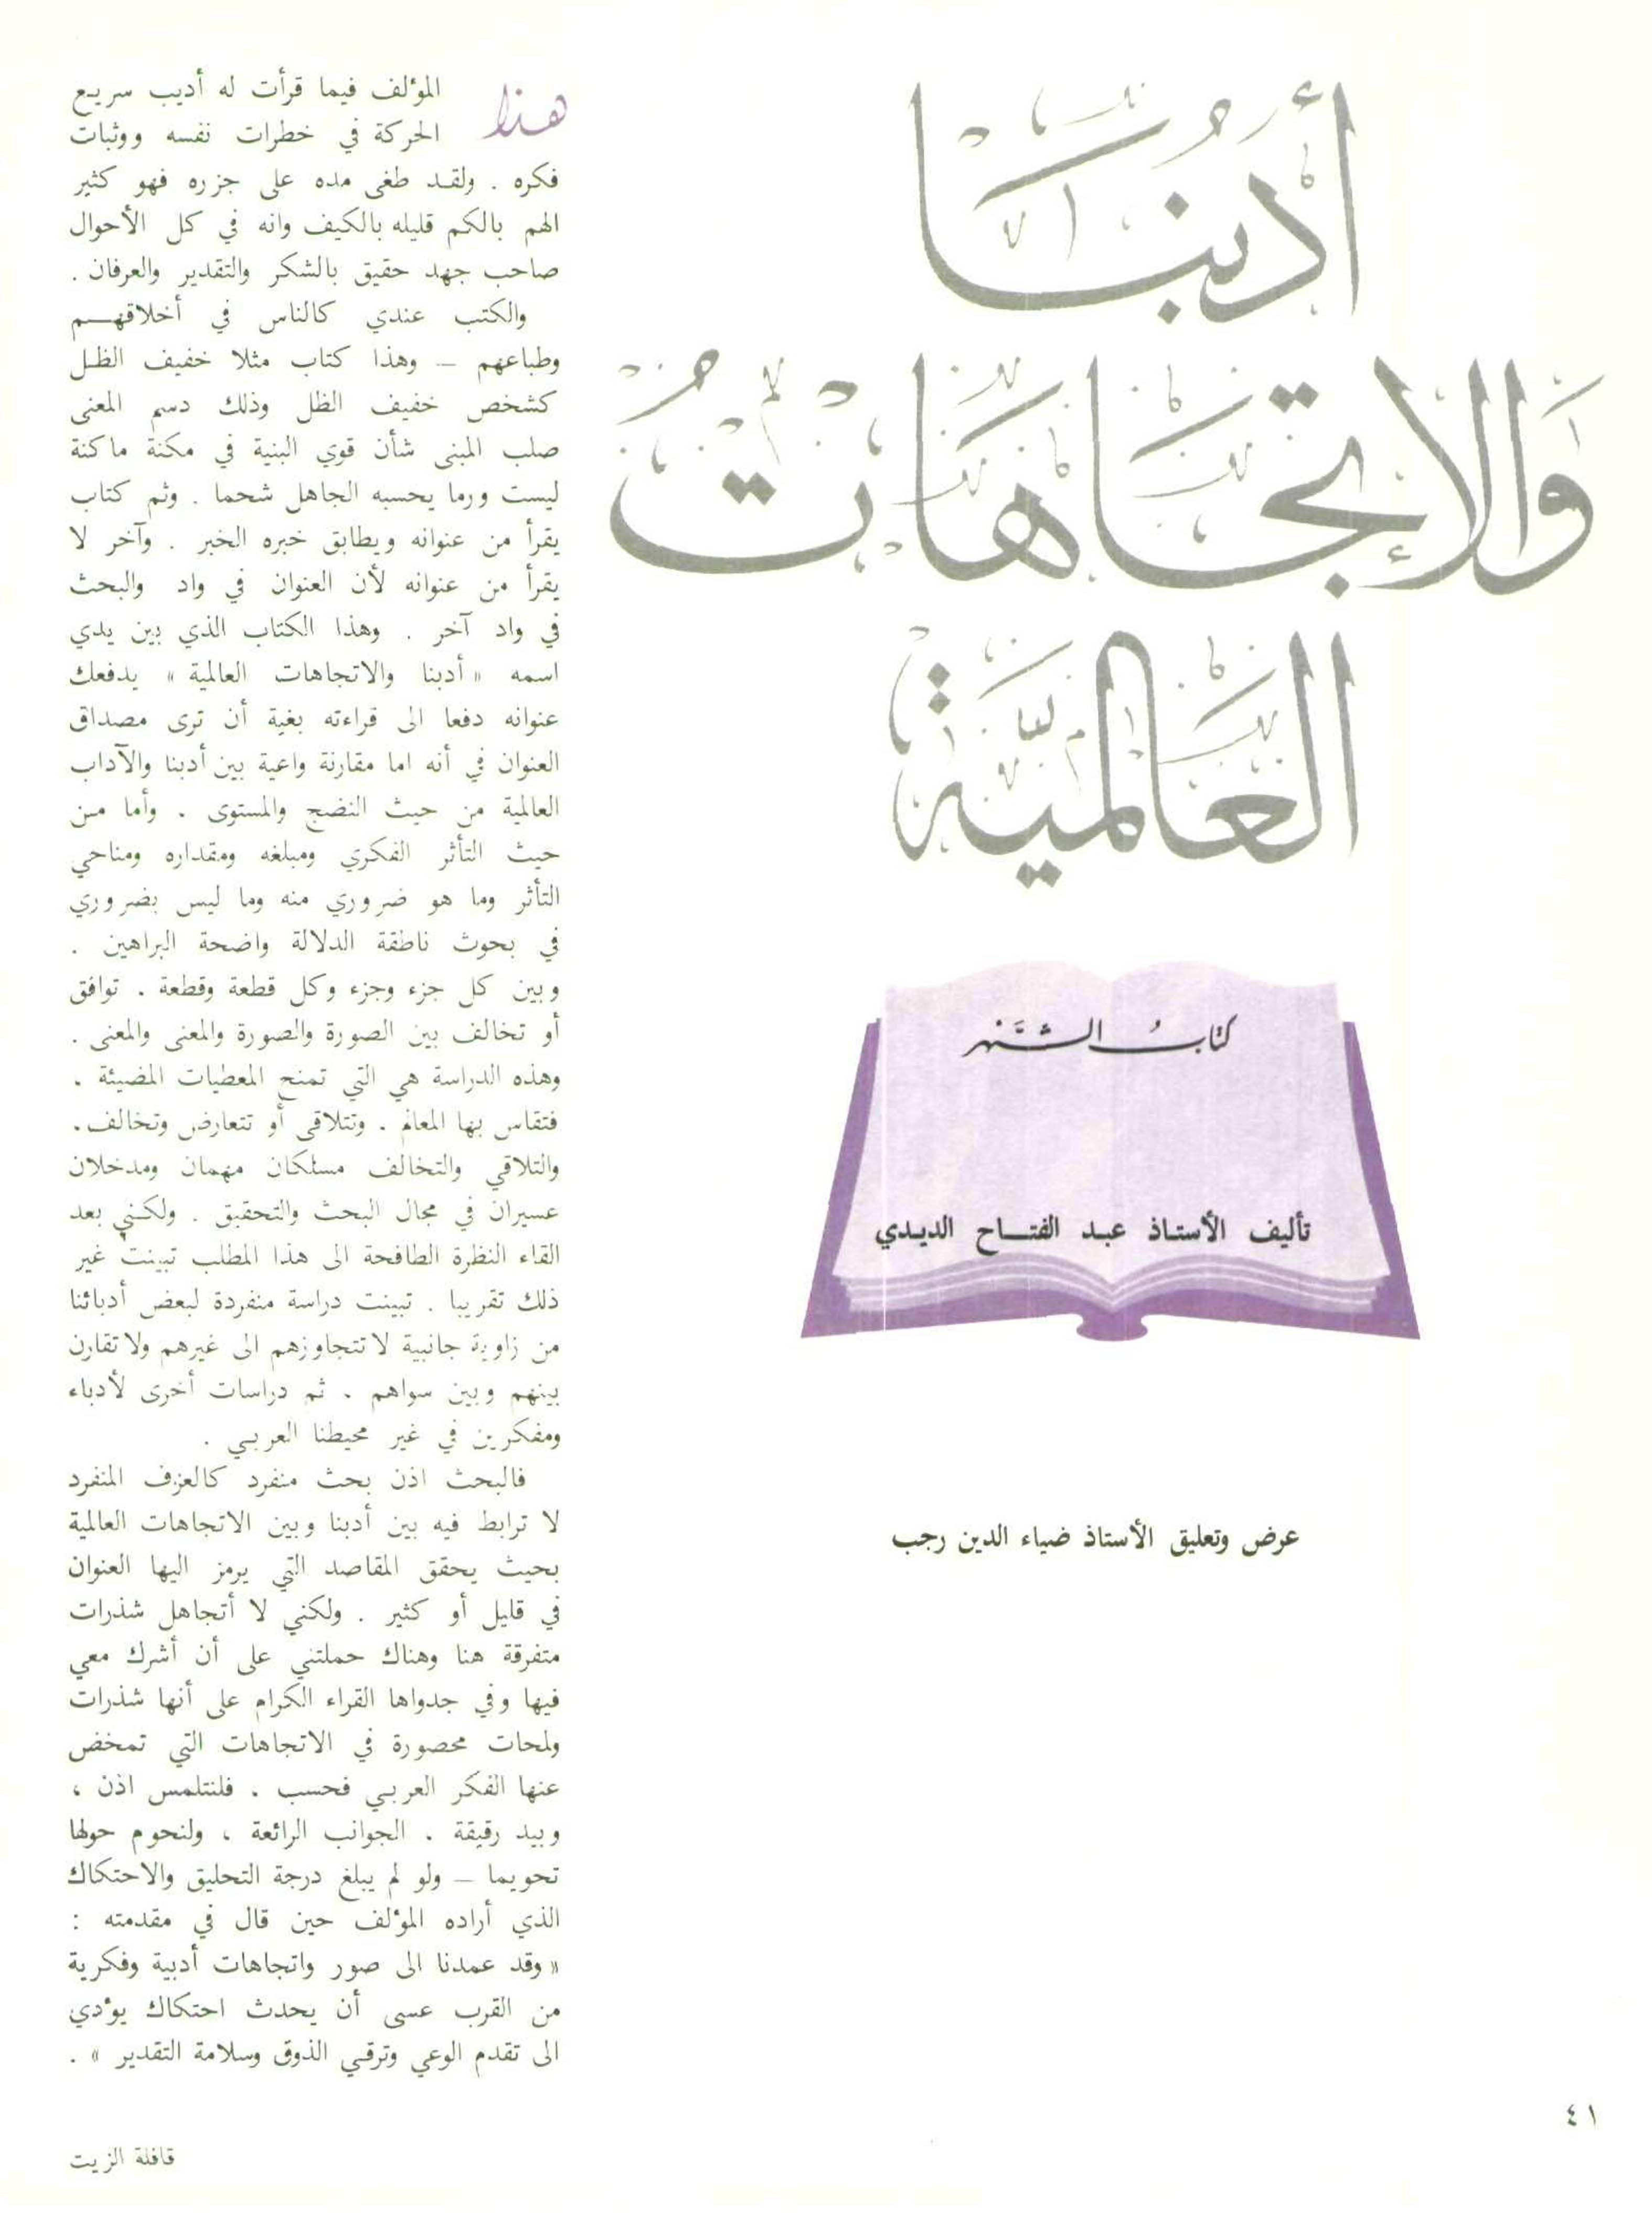 أدبنا
والاتجاهات
العالمية
كتاب الشهر
تأليف الأستاذ عبد الفتاح الديدي
عرض وتعليق الأستاذ ضياء الدين رجب
هذا المؤلف فيما قرأت له أديب سريع
الحركة في خطرات نفسه ووثبات
فكره . ولقد طغى مده على جزره فهو كثير
الهم بالكم قليله بالكيف وانه في كل الأحوال
صاحب جهد حقيق بالشكر والتقدير والعرفان .
والكتب عندي كالناس في أخلاقهم
وطباعهم – وهذا كتاب مثلا خفيف الظل
كشخص خفيف الظل وذلك دسم المعنى
صلب المبنى شأن قوي البنية في مكنة ماكنة
ليست ورما يحسبه الجاهل شحما . وثم كتاب
يقرأ من عنوانه ويطابق خبره الخبر . وآخر لا
يقرأ من عنوانه لأن العنوان في واد والبحث
في واد آخر . وهذا الكتاب الذي بين يدي
اسمه « أدبنا والاتجاهات العالمية » يدفعك
عنوانه دفعا الى قراءته بغية أن ترى مصداق
العنوان في أنه اما مقارنة واعية بين أدبنا والآداب
العالمية من حيث النضج والمستوى . وأما من
حيث التأثر الفكري ومبلغه ومقداره ومناحي
التأثر وما هو ضروري منه وما ليس بضروري
في بحوث ناطقة الدلالة واضحة البراهين .
وبين كل جزء وجزء وكل قطعة وقطعة . توافق
أو تخالف بين الصورة والصورة والمعنى والمعنى .
وهذه الدراسة هي التي تمنح المعطيات المضيئة .
فتقاس بها المعالم . وتتلاقى أو تتعارض وتخالف .
والتلاقي والتخالف مسلكان مهمان ومدخلان
عسيران في مجال البحث والتحقيق . ولكني بعد
القاء النظرة الطافحة الى هذا المطلب تبينت غير
ذلك تقريبا . تبينت دراسة منفردة لبعض أدبائنا
من زاوية جانبية لا تتجاوزهم الى غيرهم ولا تقارن
بينهم وبين سواهم . ثم دراسات أخرى لأدباء
ومفكرين في غير محيطنا العربي .
فالبحث اذن بحث منفرد كالعزف المنفرد
لا ترابط فيه بين أدبنا وبين الاتجاهات العالمية
بحيث يحقق المقاصد التي يرمز اليها العنوان
في قليل أو كثير . ولكني لا أتجاهل شذرات
متفرقة هنا وهناك حملتني على أن أشرك معي
فيها وفي جدواها القراء الكرام على أنها شذرات
ولمحات محصورة في الاتجاهات التي تمخض
عنها الفكر العربي فحسب . فلنتلمس اذن ،
وبيد رقيقة . الجوانب الرائعة ، ولنحوم حولها
تحويما – ولو لم يبلغ درجة التحليق والاحتكاك
الذي أراده المؤلف حين قال في مقدمته :
« وقد عمدنا الى صور واتجاهات أدبية وفكرية
من القرب عسى أن يحدث احتكاك يؤدي
الى تقدم الوعي وترقي الذوق وسلامة التقدير » .
٤١
قافلة الزيت